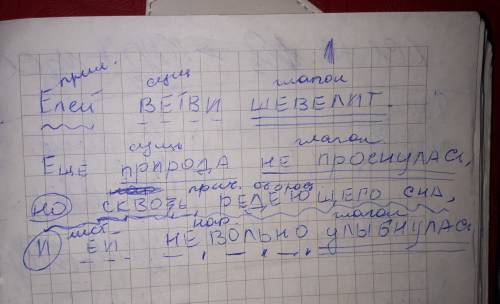 1
прил. сущ глагол
Елей ВЕТВИ ШЕВЕЛИТ.
сущ глагол
Еще ПРИРОДА НЕ ПРОСНУЛАСЬ,
прич. оборот
НО СКВОЗЬ РЕДЕЮЩЕГО СНА,
мест- нар глагол
И ЕЙ НЕВОЛЬНО УЛЫБНУЛАСЬ